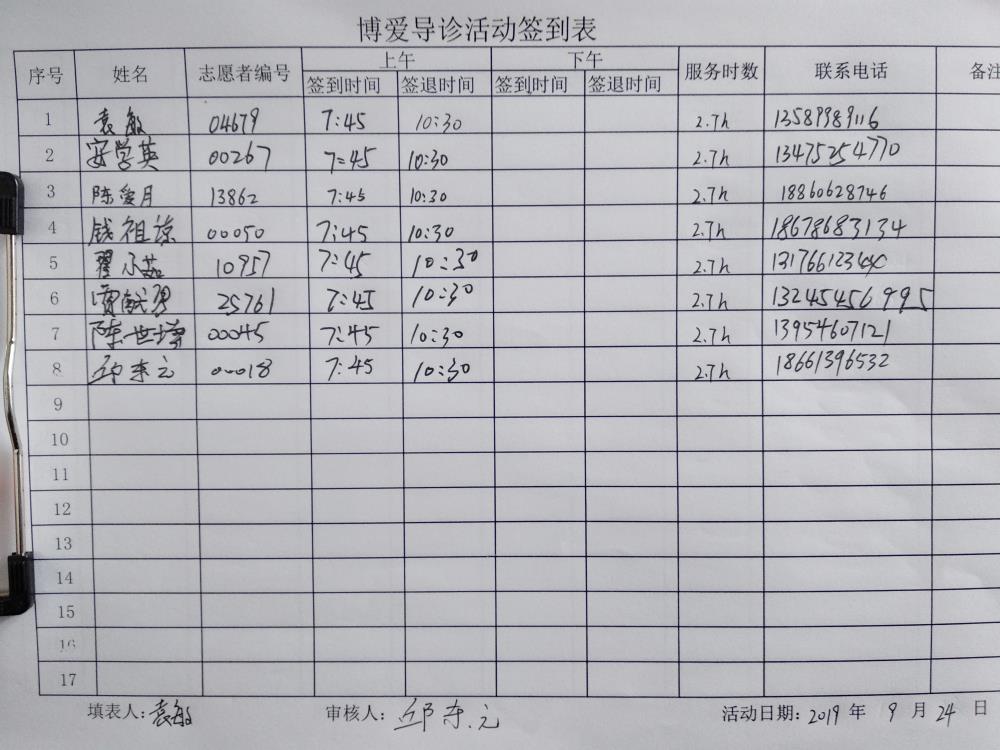 博爱导诊活动签到表
序号 姓名 志愿者编号 上午 下午 服务时数 联系电话 备注
签到时间 签退时间 签到时间 签退时间
1 袁敏 04679 7:45 10:30 2.7h 13589989116
2 安学英 00267 7:45 10:30 2.7h 13475254770
3 陈爱月 13862 7:45 10:30 2.7h 18860628746
4 钱祖谅 00050 7:45 10:30 2.7h 18678683134
5 翟小茹 10957 7:45 10:30 2.7h
6 25761 7:45 10:30 2.7h 13245456995
7 陈世增 00045 7:45 10:30 2.7h 13954607121
8 邱东元 00018 7:45 10:30 2.7h 18661396532
9
10
11
12
13
14
15
16
17
填表人:袁敏 审核人:邱东元 活动日期:2019 年 9 月 24 日